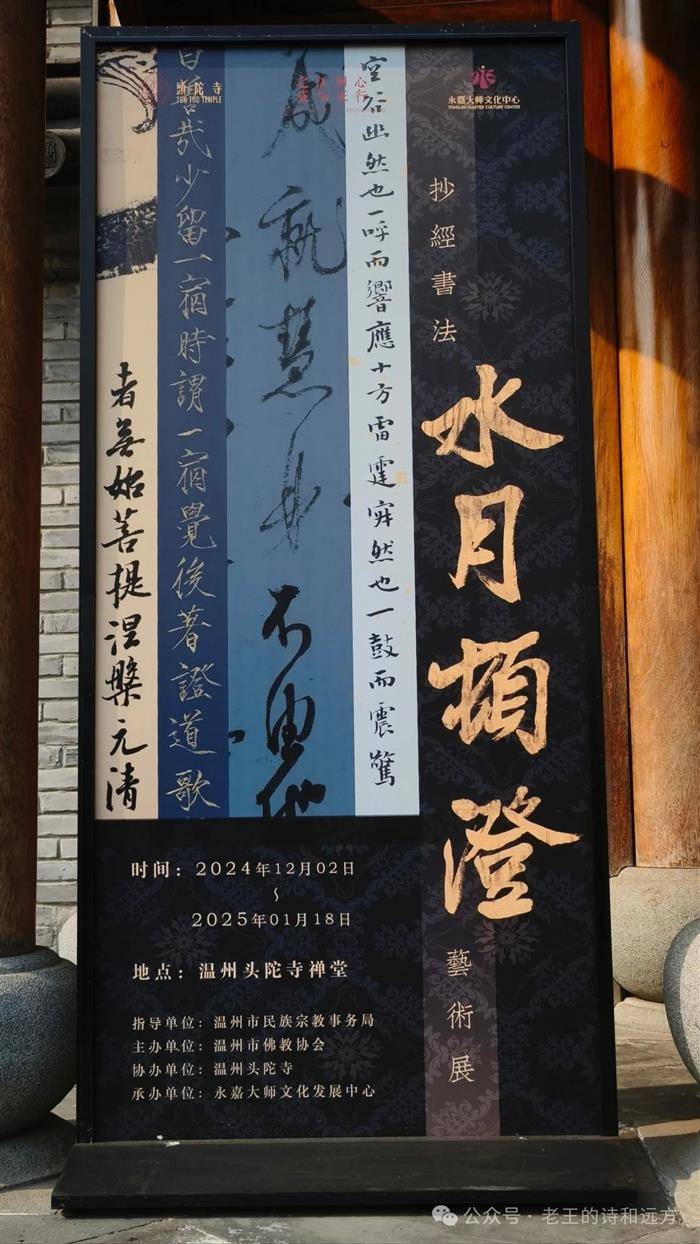 頭陀寺
TOU TUO TEMPLE
永嘉大师文化中心
YONGJIA MASTER CULTURE CENTER
抄經書法
水月頓澄
藝術展
空谷幽然也一呼而響應十方雷霆寂然也一鼓而震驚
就慧也不由他
哉少留一宿時謂一宿覺後著證道歌
者無始菩提涅槃元清
时间：2024年12月02日
～
2025年01月18日
地点：温州头陀寺禅堂
指导单位：温州市民族宗教事务局
主办单位：温州市佛教协会
协办单位：温州头陀寺
承办单位：永嘉大师文化发展中心
公众号·老王的诗和远方